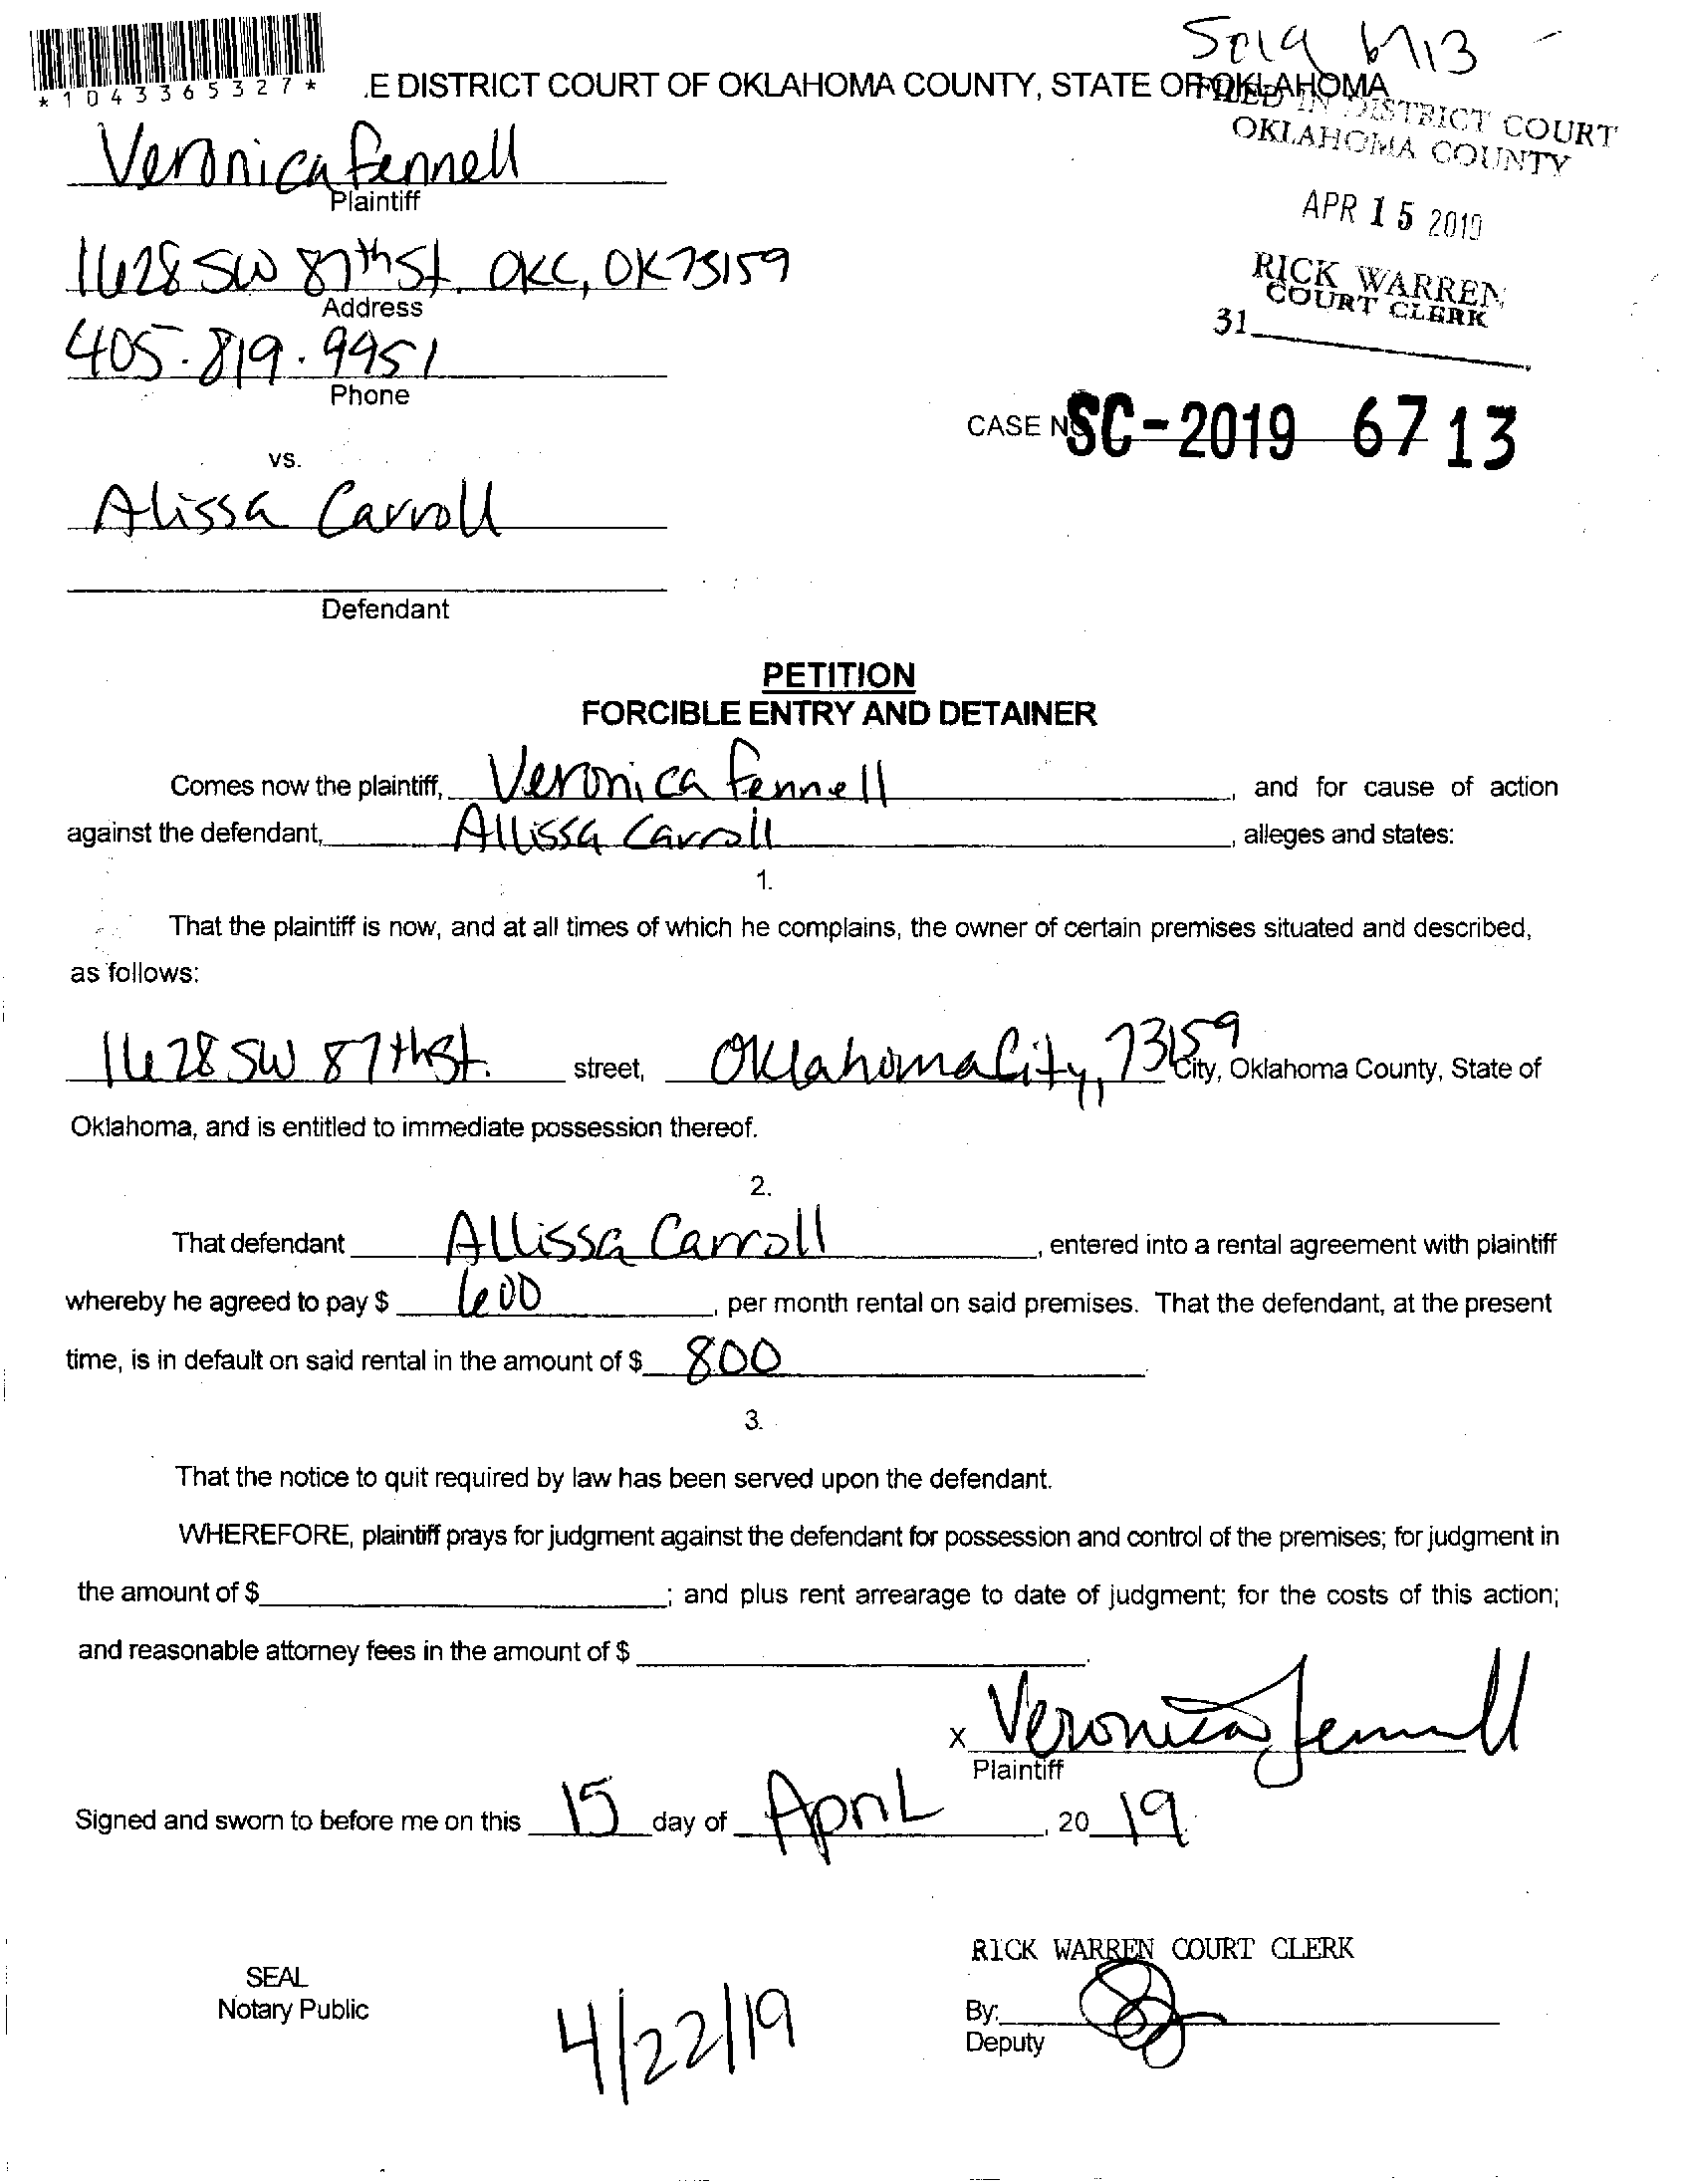 SC19 6713 -
*1043365327*
.E DISTRICT COURT OF OKLAHOMA COUNTY, STATE OF OKLAHOMA
FILED IN DISTRICT COURT
OKLAHOMA COUNTY
Veronica Fennell
Plaintiff
APR 15 2019
1628 SW 87th St. OKC, OK 73159
Address
RICK WARREN
COURT CLERK
31
405.819.9951
Phone
CASE NO SC-2019 6713
vs.
Alissa Carroll
Defendant
PETITION
FORCIBLE ENTRY AND DETAINER
Comes now the plaintiff, Veronica Fennell, and for cause of action
against the defendant, Allissa Carroll, alleges and states:
1.
That the plaintiff is now, and at all times of which he complains, the owner of certain premises situated and described,
as follows:
1628 SW 87th St. street, Oklahoma City, 73159 City, Oklahoma County, State of
Oklahoma, and is entitled to immediate possession thereof.
2.
That defendant Allissa Carroll, entered into a rental agreement with plaintiff
whereby he agreed to pay $ 600, per month rental on said premises. That the defendant, at the present
time, is in default on said rental in the amount of $ 800.
3.
That the notice to quit required by law has been served upon the defendant.
WHEREFORE, plaintiff prays for judgment against the defendant for possession and control of the premises; for judgment in
the amount of $ ; and plus rent arrearage to date of judgment; for the costs of this action;
and reasonable attorney fees in the amount of $ .
x Veronica Fennell
Plaintiff
Signed and sworn to before me on this 15 day of April, 20 19.
RICK WARREN COURT CLERK
SEAL
Notary Public
4/22/19
By:
Deputy